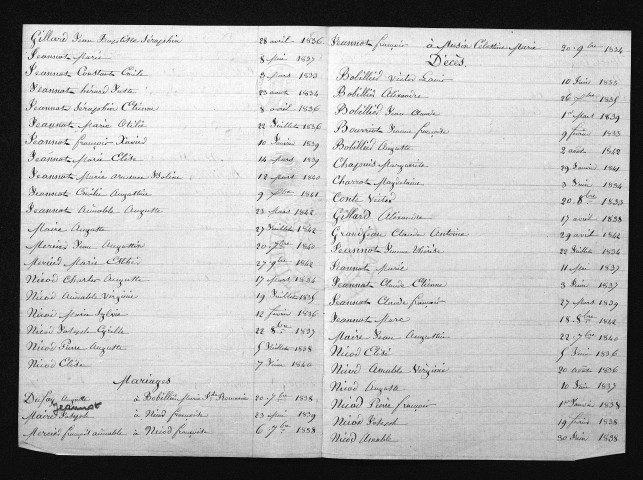 Gillard Jean Baptiste Séraphin 28 avril 1836
Jeannot Marie 8 Mai 1837
Jeannot Constant Emile 3 Mars 1833
Jeannot Juste 23 août 1834
Jeannot Séraphin Etienne 8 avril 1836
Jeannot Marie 22 Juillet 1836
Jeannot françois Xavier 10 février 1839
Jeannot Marie Elise 14 Mars 1839
Jeannot Marie 12 Mars 1840
Jeannot Emilie Augustine 9 1841
Jeannot Aimable Auguste 23 Mars 1842
Maire Auguste 27 Juillet 1842
Mercier Jean Augustin 20 7bre 1840
Mercier Marie 27 9bre 1842
Nicod Charles Auguste 17 Mars 1834
Nicod Aimable Virginie 19 Juillet 1835
Nicod Marie Sylvie 12 février 1836
Nicod Joseph Cyrille 22 8bre 1837
Nicod Pierre Auguste 5 Juillet 1838
Nicod Elise 7 Juin 1840
Mariages
Dufay Auguste à Bobillier Marie 20 7bre 1838
Jeannot
Maire Joseph à Nicod françoise 23 Mai 1839
Mercier françois aimable à Nicod françoise 6 7bre 1838
Jeannot françois à Musin Célestine Marie 20 9bre 1834
Décès
Bobillier Victor Louis 10 Juin 1833
Bobillier Alexandre 26 1835
Bobillier Jean Claude 1er Mars 1839
Bourriot Jeanne françoise 9 février 1833
Bobillier Auguste 2 août 1842
Chapuis Marguerite 29 Janvier 1841
Charrot Magdelaine 3 Juin 1834
Conte Victor 20 8bre 1833
Gillard Alexandre 17 avril 1838
Grandjean Claude Antoine 29 avril 1842
Jeannot Jeanne Thérèse 22 Juillet 1834
Jeannot Marie 11 Mai 1837
Jeannot Claude Etienne 8 Juin 1837
Jeannot Claude françois 27 Mars 1839
Jeannot Marc 18 8bre 1842
Maire Jean Augustin 22 7bre 1840
Nicod Elisé 5 Juin 1836
Nicod Amable Virginie 20 août 1836
Nicod Auguste 10 Juin 1837
Nicod Pierre françois 1er Janvier 1838
Nicod Joseph 19 février 1838
Nicod Amable 30 Juin 1838